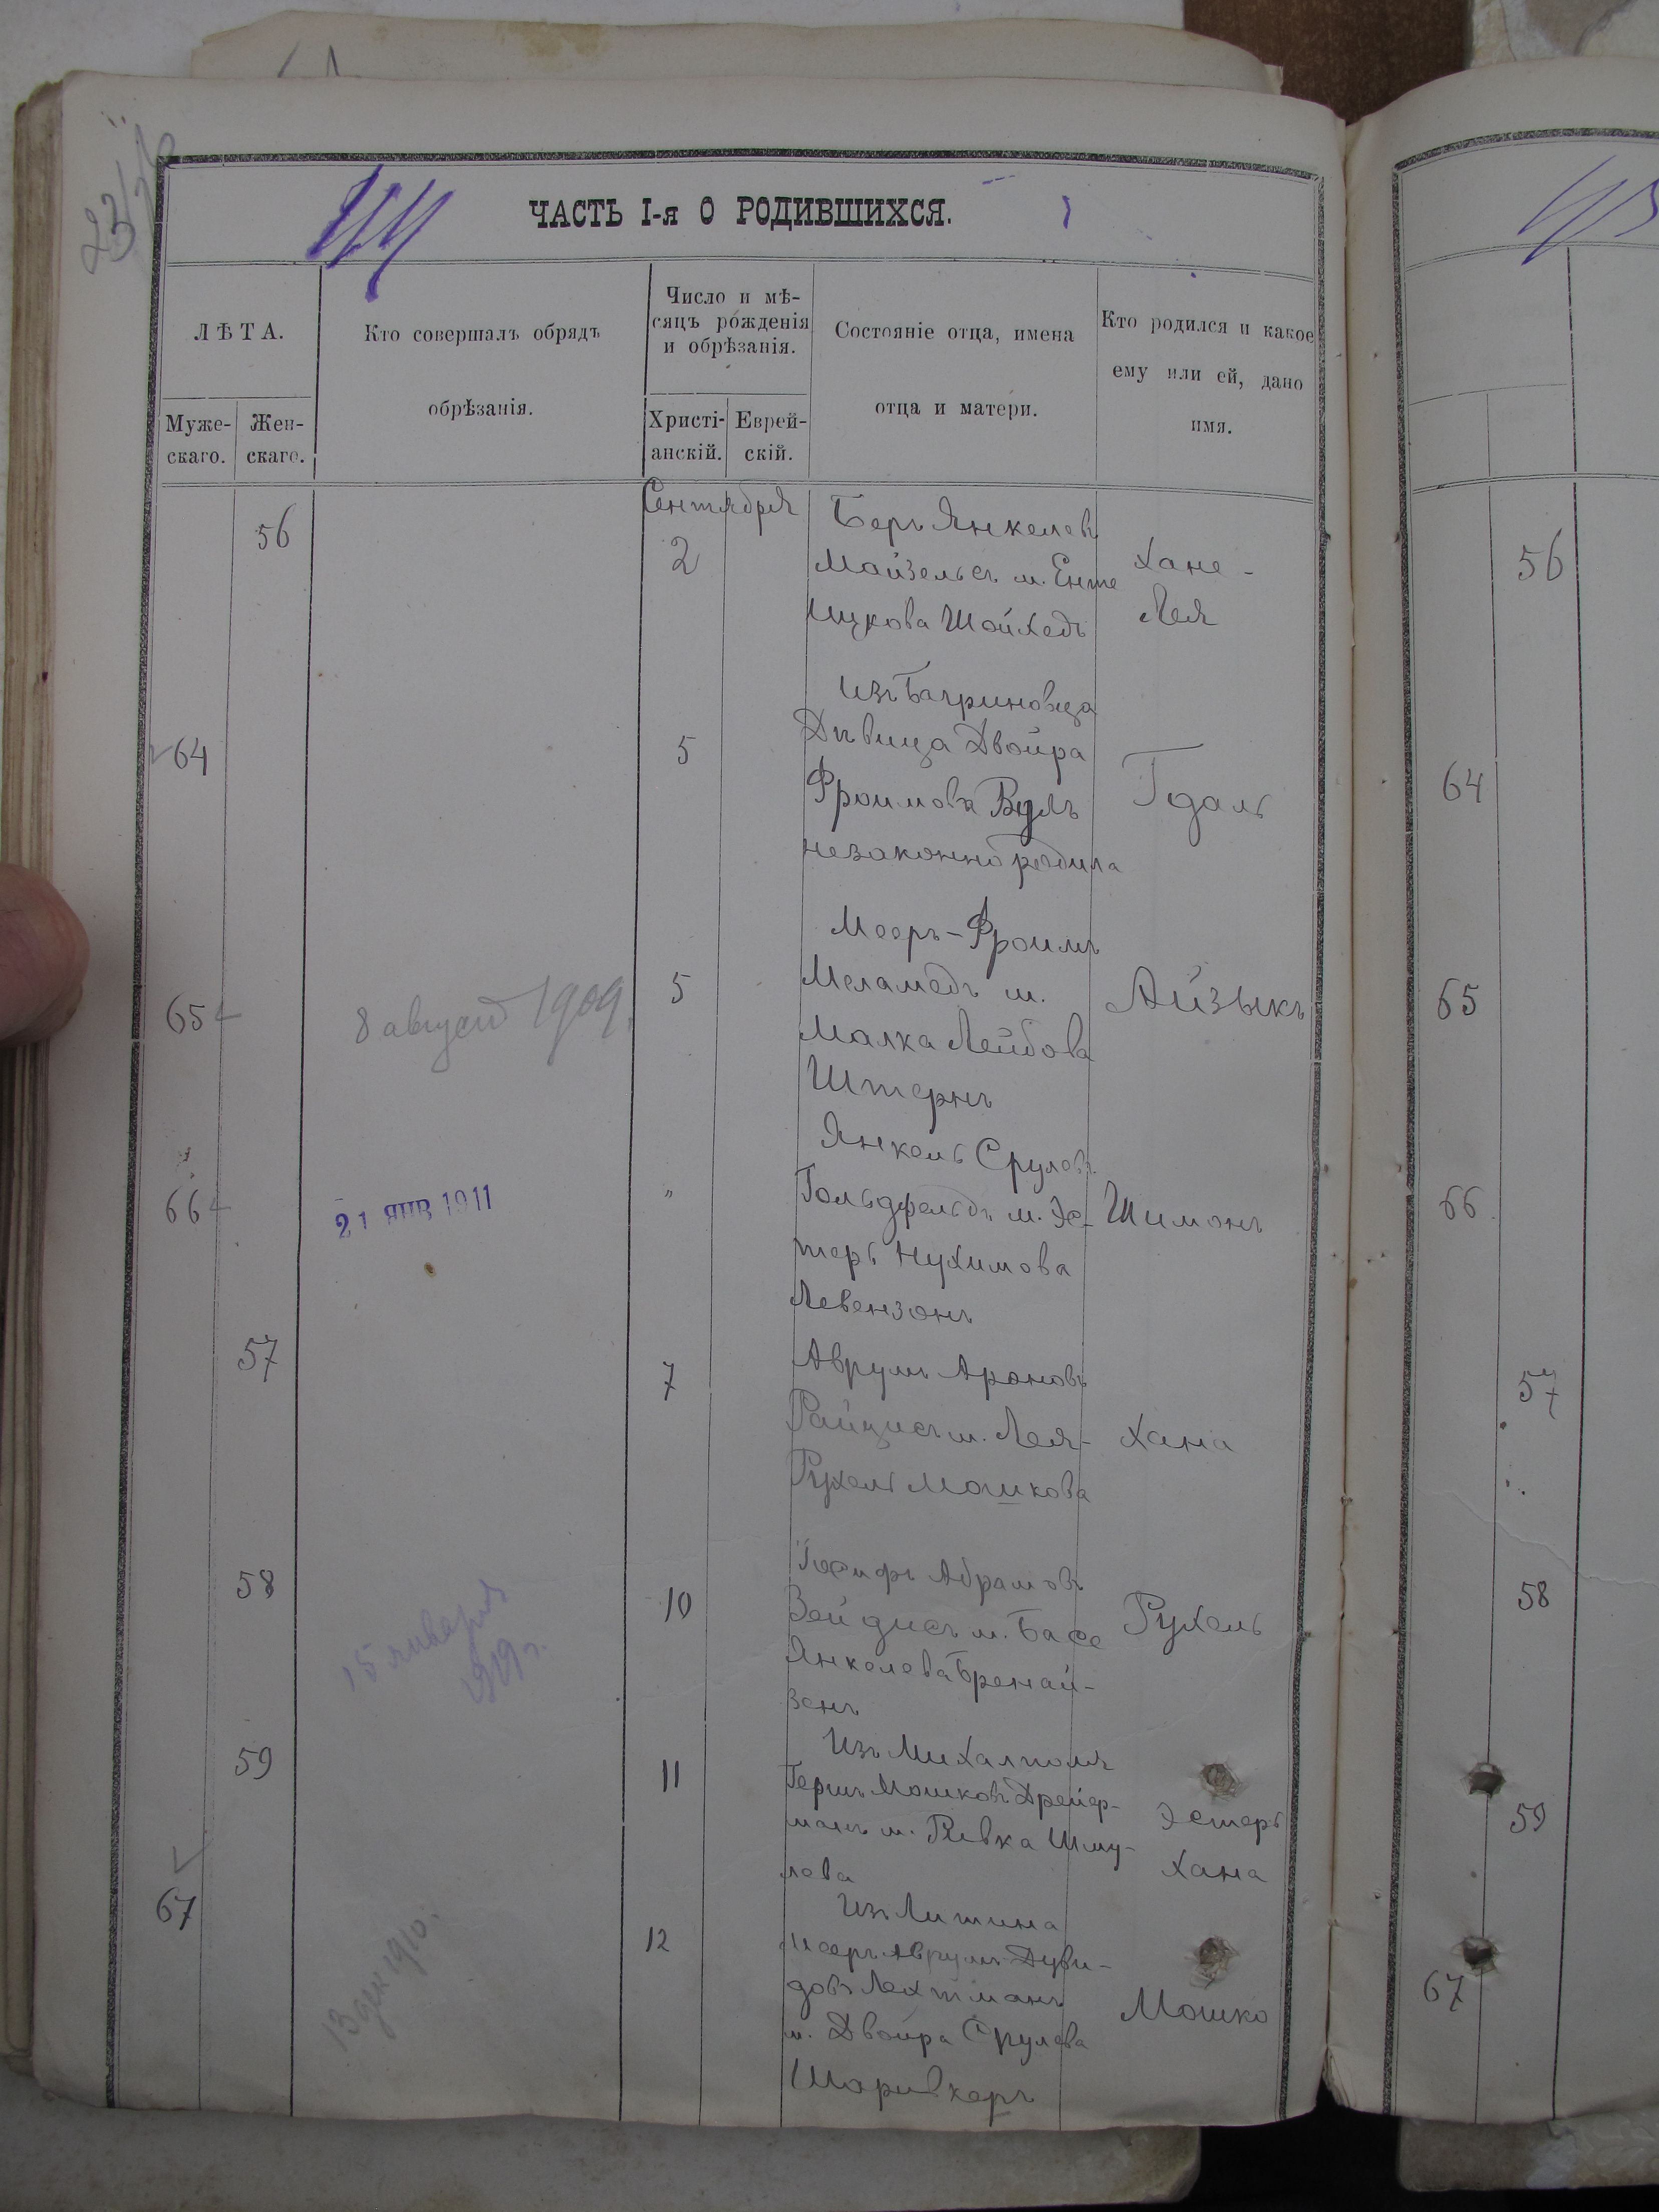 ЧАСТЬ I-я О РОДИВШИХСЯ.
ЛѢТА.
Муже-
скаго.
Жен-
скаго.
Кто совершалъ обрядъ
обрѣзанія.
Число и мѣ-
сяцъ рожденія
и обрѣзанія.
Христі-
анскій.
Еврей-
скій.
Состояніе отца, имена
отца и матери.
Кто родился и какое
ему или ей, дано
имя.
Сентября
56
2
Беръ Янкелевъ
Майзельсъ м. Енте
Ицкова Шойхедъ
Хане-
Лея
64
5
Изъ Багриновца
Дѣвица Двойра
Фроимова
незаконно родила
Гдаль
65
8 август 1909.
5
Мееръ-Фроимъ
Меламедъ м.
Малка Лейбова
Штернъ
Айзыкъ
66
21 ЯНВ 1911
"
Янкель Срулевъ
Гольдфельдъ м. Эс-
теръ Нухимова
Левензонъ
Шимонъ
57
7
Аврумъ Ароновъ
Райцисъ м. Лея-
Рухель Мошкова
Хана
58
15 января
1919 г.
10
Іосифъ Абрамовъ
Зейдисъ м. Басе
Янкелева Бренай-
зенъ
Рухель
59
11
Изъ Михалполя
Гершъ Мошковъ Дрейер-
манъ м. Ривка Шму-
лева
Эстеръ
Хана
67
13 дек 1910 г.
12
Изъ Литина
Мееръ Аврумъ Дуви-
довъ Лехтманъ
м. Двойра Срулева
Шаривкеръ
Мошко
56
64
65
66
57
58
59
67